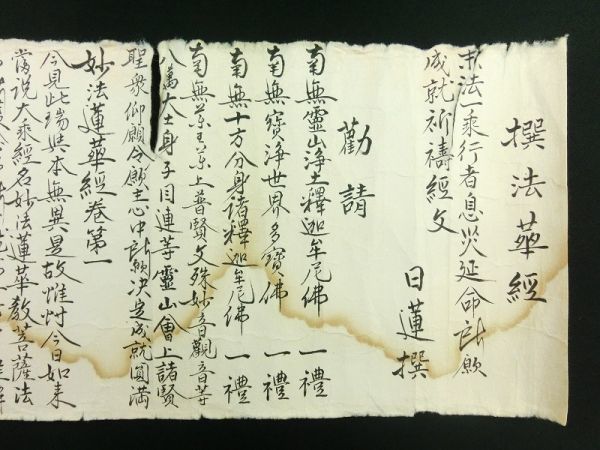 撰法華經
末法一乘行者息災延命所願
成就祈禱經文
日蓮撰
勸請
南無靈山浄土釋迦牟尼佛 一禮
南無寶浄世界多寶佛 一禮
南無十方分身諸釋迦牟尼佛 一禮
南無薬王薬上普賢文殊妙音觀音等
八萬大士身子目連等靈山會上諸賢
聖衆仰願令願主心中所願決定成就圓滿
妙法蓮華經卷第一
今見此瑞與本無異是故惟忖今日如来
當説大乘經名妙法蓮華教菩薩法